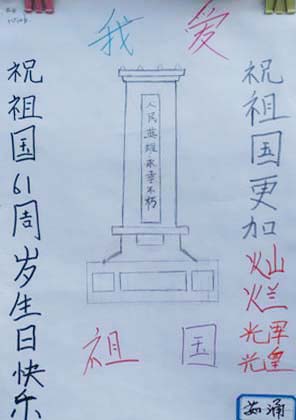 我爱
祖国
祝祖国61周岁生日快乐
人民英雄永垂不朽
祝祖国更加灿烂光辉光煌
茹涌